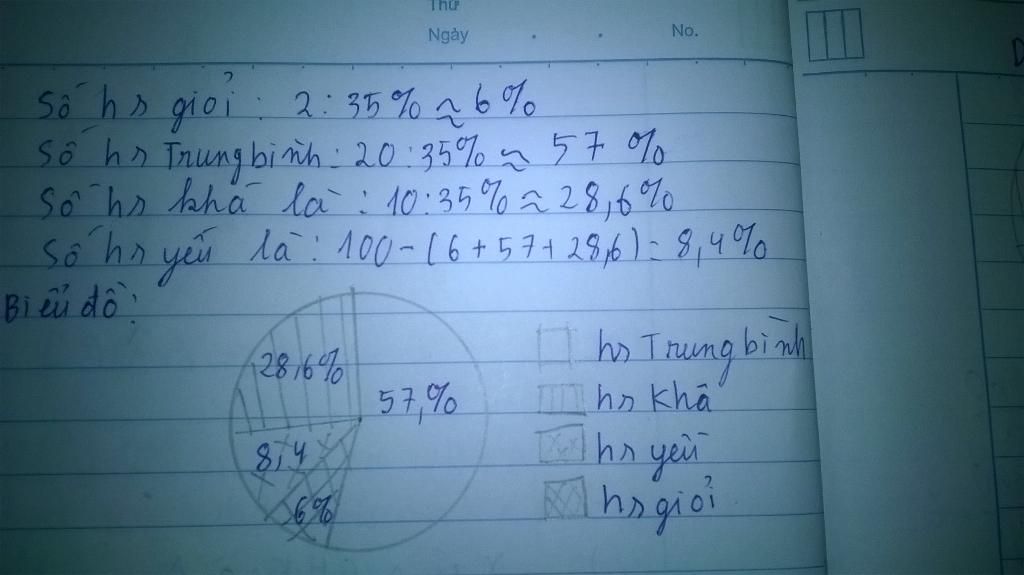 Thứ
Ngày . . No.
Số hs giỏi : 2 : 35% ≈ 6%
Số hs Trung bình : 20 : 35% ≈ 57 %
Số hs khá là : 10 : 35% ≈ 28,6%
Số hs yếu là : 100 - (6 + 57 + 28,6) = 8,4%
Biểu đồ :
28,6%
57,%
8,4
6%
hs Trung bình
hs Khá
hs yếu
hs giỏi